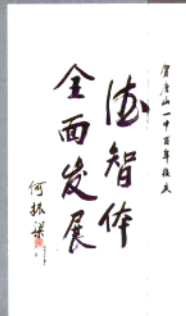 贺唐山一中百年校庆
德智体
全面发展
何振梁